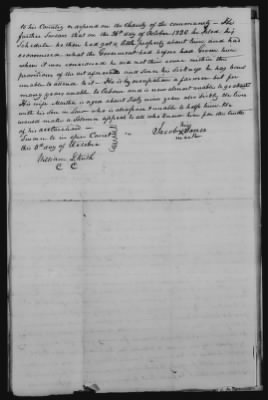 to his Country or depend on the Charity of the community – He
further Swears that on the day of October 1820 he filed his
Schedule he then had got a little property about him and had
what the Government had before had Given him
when it was considered he did not then come within the
provisions of the act and Since his Sickness he has been
unable to attend to it – He is by occupation a farmer but for
many years unable to labour and is now almost unable to go about
His wife Martha is aged about Sixty years also Sickly He lives
with his Son in Law who is & unable to help him He
would make a Solemn appeal to all who know him for the truth
of his declaration –
Sworn to in open Court
this 8th day of October
his
Jacob Jones
mark
William S Keith
C C